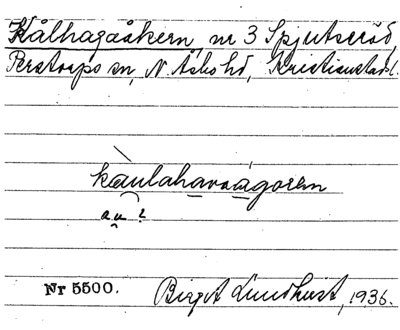 Kålhagaåkern, nr 3 Spjutseröd,
Perstorps sn, N. Åsbo hd, Kristianstad l.
kàulahavaágoren
au ?
Nr 5500. Birgit Lundhust, 1936.